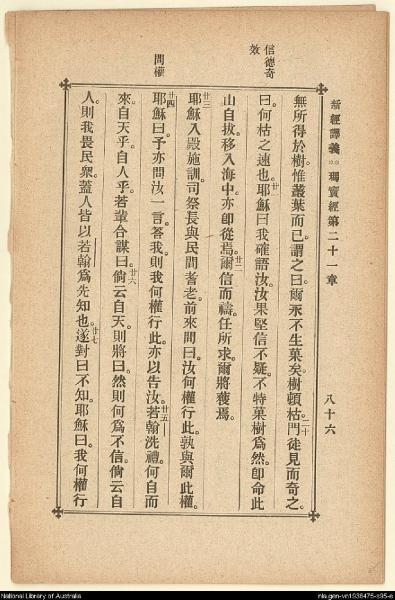 新經譯義 瑪竇經第二十一章 八十六
信德奇效
問權
無所得於樹。惟叢葉而已。謂之曰。爾永不生菓矣。樹頓枯。二十門徒見而奇之。
曰。何枯之速也。廿一耶穌曰。我確語汝。汝果堅信不疑。不特菓樹爲然。卽命此
山自拔。移入海中。亦卽從焉。廿二爾信而禱。任所求。爾將獲焉。
廿三耶穌入殿施訓。司祭長與民間耆老。前來問曰。汝何權行此。孰與爾此權。
廿四耶穌曰。予亦問汝一言。答我。則我何權行此。亦以告汝。廿五若翰洗禮。何自而
來。自天乎。自人乎。若輩合謀曰。廿六倘云自天。則將曰。然則何爲不信。倘云自
人。則我畏民衆。蓋人皆以若翰爲先知也。廿七遂對曰。不知。耶穌曰。我何權行
National Library of Australia
nla.gen-vn1938475-s95-e